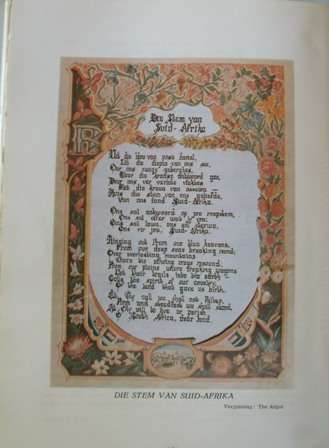 Die Stem van
Suid-Afrika
Uit die blou van onse hemel,
Uit die diepte van ons see,
Oor ons ewige gebergtes,
Waar die kranse antwoord gee,
Deur ons ver verlate vlaktes
Met die kreun van ossewa —
Ruis die stem van ons geliefde,
Van ons land Suid-Afrika.
Ons sal antwoord op jou roepstem,
Ons sal offer wat jy vra;
Ons sal lewe, ons sal sterwe,
Ons vir jou, Suid-Afrika.
Ringing out from our blue heavens,
From our deep seas breaking round;
Over everlasting mountains
Where the echoing crags resound;
From our plains where creaking wagons
Cut their trails into the earth —
Calls the spirit of our country,
Of the land that gave us birth.
At thy call we shall not falter,
Firm and steadfast we shall stand,
At thy will to live or perish
South Africa, dear land.
DIE STEM VAN SUID-AFRIKA
Vergunning: The Argus